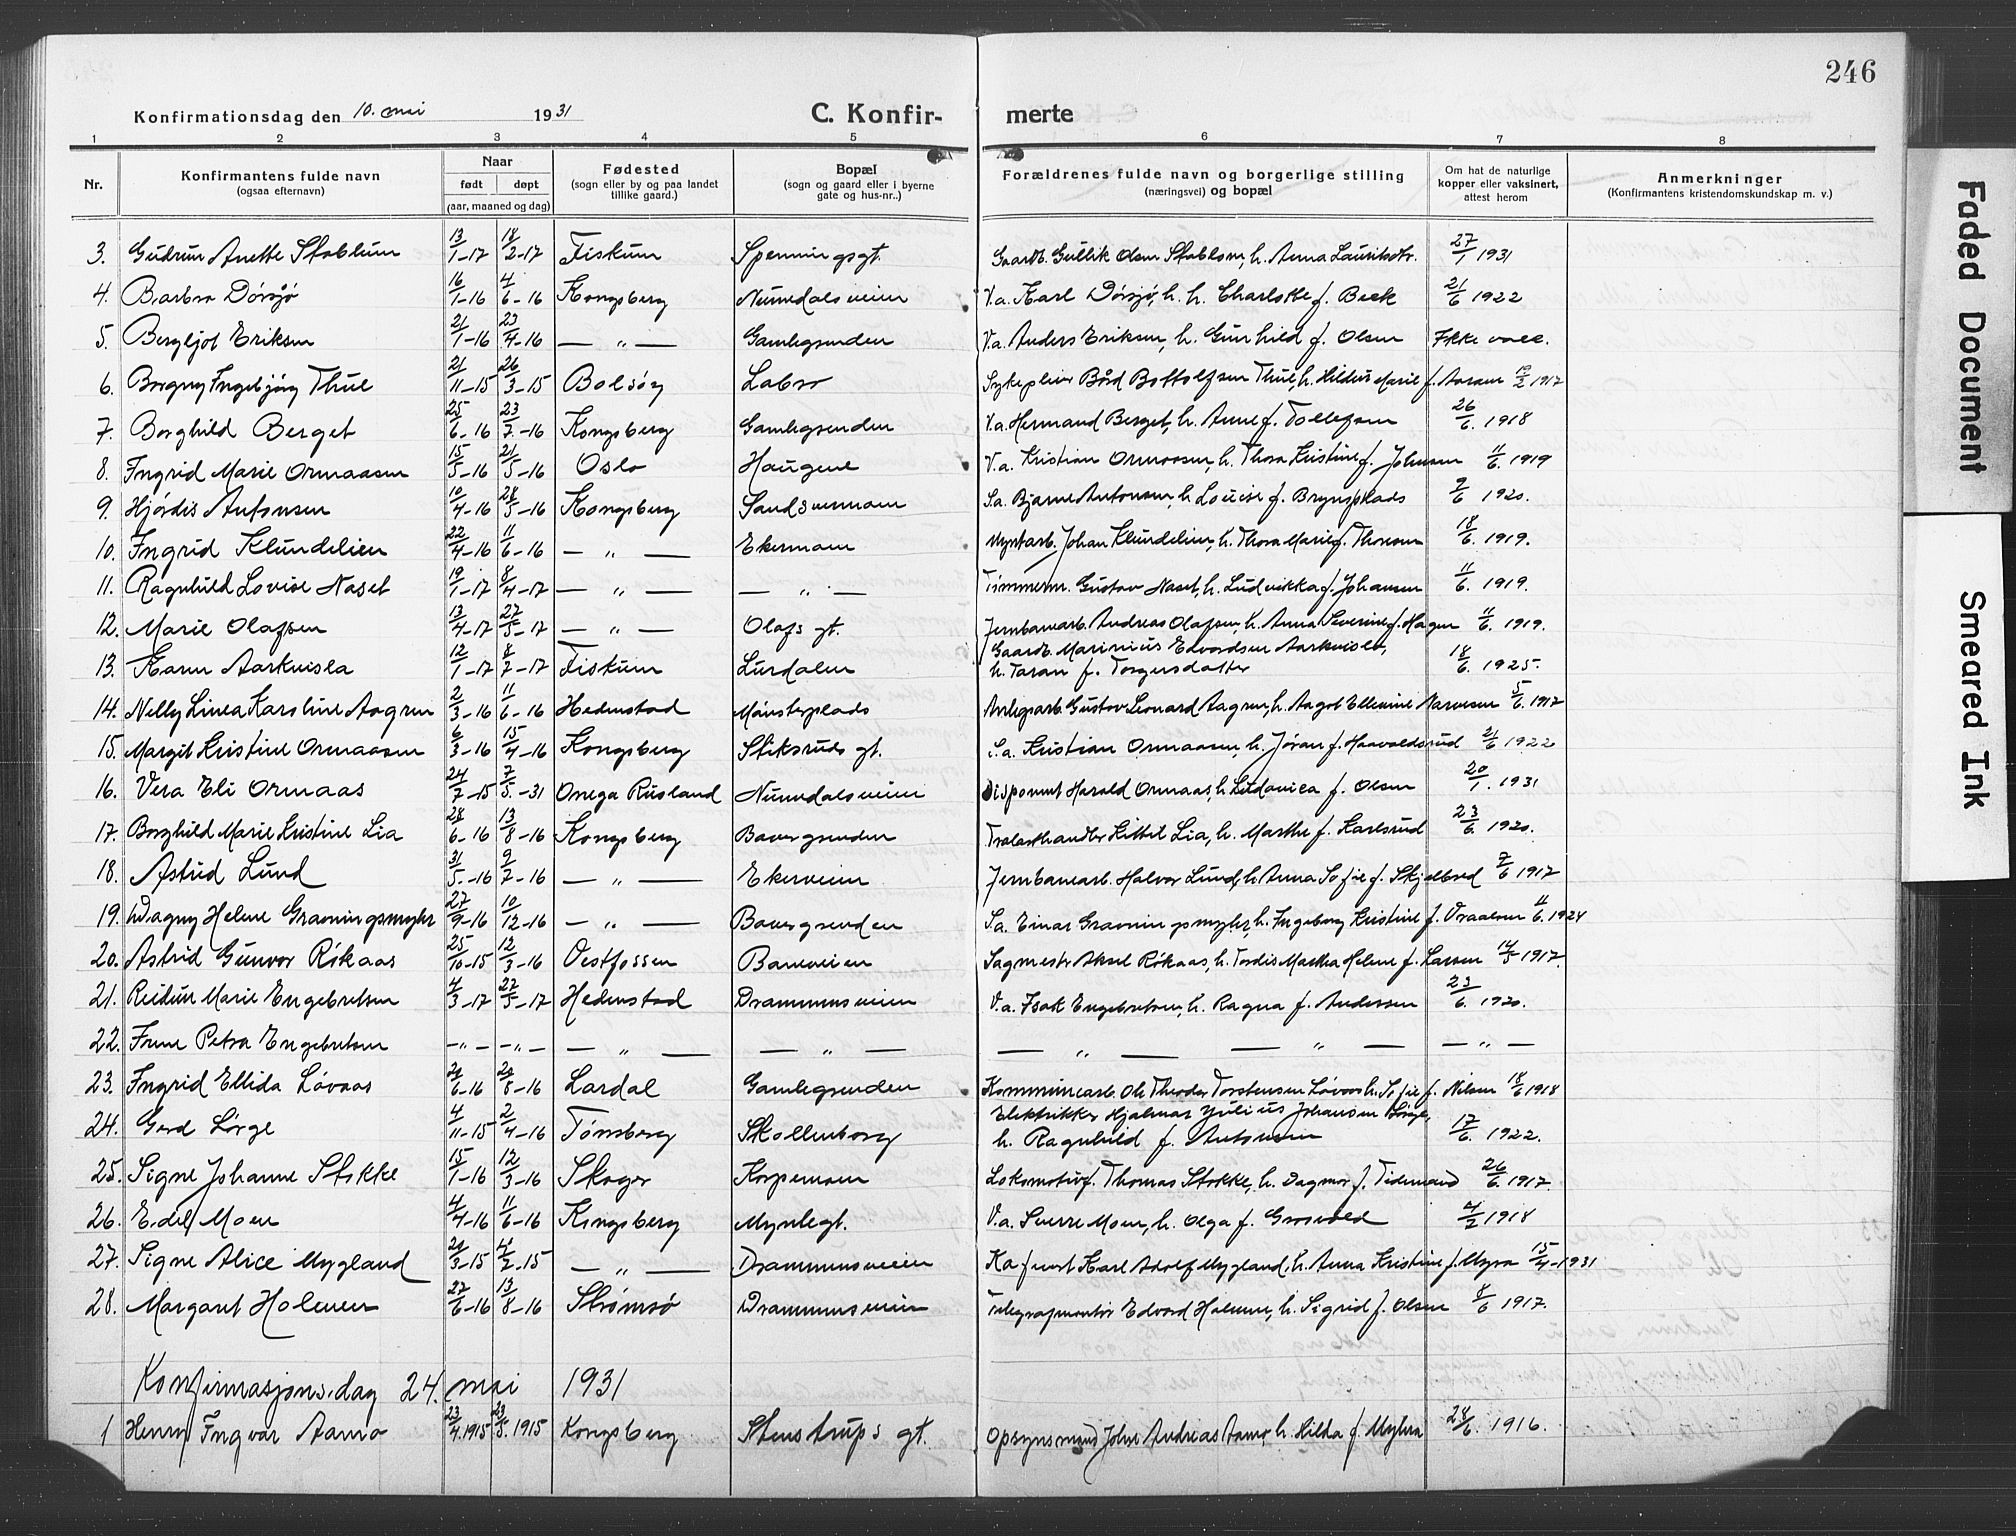 246
Konfirmationsdag den 10. mai 1931 C. Konfir- merte
1 2 3 4 5 6 7 8
Nr. Konfirmantens fulde navn (ogsaa efternavn) Naar født døpt (aar, maaned og dag) Fødested (sogn eller by og paa landet tillike gaard.) Bopæl (sogn og gaard eller i byerne gate og hus-nr..) Forældrenes fulde navn og borgerlige stilling (næringsvei) og bopæl Om hat de naturlige kopper eller vaksinert, attest herom Anmerkninger (Konfirmantens kristendomskundskap m. v.)
3. Gudrun Anette Stablum 13/1-17 18/2-17 Fiskum Spenningsgt. Gaardb. Gullik Olsen Stablom, h. Anna Lauritsdtr. 27/1 1931
4. Barbro Dørsjø 16/1-16 4/6-16 Kongsberg Numedalsveien V.a. Karl Dørsjø, h. h. Charlotte f. Beck 21/6 1922
5. Bergljot Eriksen 21/1-16 23/4-16 — „ — Gamlegrenden V.a. Anders Eriksen, h. Gunhild f. Olsen Ikke vacc.
6. Borgny Ingebjørg Thue 21/11-15 26/3-15 Bolsøy Labro Sykepleier Bård Bottolfsen Thue, h. Hildus Marie f. Aarsen 1917
7. Borghild Berget 25/6-16 23/7-16 Kongsberg Gamlegrenden V.a. Hermand Berget, h. Anne f. Tollefsen 26/6. 1918
8. Ingrid Marie Ormaasen 15/5-16 21/5-16 Oslo Haugene V.a. Kristian Ormaasen, h. Thora Kristine f. Johnsen 11/6. 1919
9. Hjørdis Antonsen 10/4-16 28/5-16 Kongsberg Sandsvermoen S.a. Bjarne Antonsen, h. Louise f. Brynsplads 9/6 1920.
10. Ingrid Klundelien 22/4-16 11/6-16 — „ — Ekermoen Myntarb. Johan Klundelien, h. Thora Marie f. Thoresen 18/6. 1919.
11. Ragnhild Lovise Naset 19/1-17 8/4-17 — „ — — „ — Timmerm. Gustav Naset, h. Ludvikka f. Johansen 11/6. 1919.
12. Marie Olafsen 13/4-17 27/5-17 — „ — Olafs gt. Jernbanearb. Andreas Olafsen, h. Anna Severine f. Hagen 11/6. 1919.
13. Karen Aarkvisla 12/1-17 8/7-17 Fiskum Lurdalen Gaardb. Marinius Edvardsen Aarkvisla,
h. Taran f. Torgersdatter 18/6. 1925.
14. Nelly Linea Karoline Aagren 2/3-16 11/6-16 Hedenstad Mønsterplads Anlegsarb. Gustov Leonard Aagren, h. Aagot Ellevine Narvesen 5/6. 1917
15. Margit Kristine Ormaasen 6/3-16 15/4-16 Kongsberg Stiksruds gt. S.a. Kristian Ormaasen, h. Jøran f. Haavaldsrud 21/6 1922
16. Vera Eli Ormaas 24/7-15 7/5-31 Onega Rusland Numedalsveien Disponent Harald Ormaas, h. Ludovica f. Olsen 20/1. 1931
17. Borghild Marie Kristine Lia 28/6-16 13/8-16 Kongsberg Bævergrenden Trælasthandler Kittel Lia, h. Marthe f. Karlsrud 23/6. 1920.
18. Astrid Lund 31/5-16 9/7-16 — „ — Ekerveien Jernbanearb. Halvor Lund, h. Anna Sofie f. Skjelbred 7/6 1917
19. Dagny Helene Gravningsmyhr 27/9-16 10/12-16 — „ — Bævergrenden S.a. Einar Gravningsmyhr, h. Ingeborg Kristine f. Vraalsen 11/6. 1924
20. Astrid Gunvor Røkaas 25/10-15 12/3-16 Vestfossen Baneveien Sagmester Aksel Røkaas, h. Tordis Martha Helene f. Larsen 14/5 1917.
21. Reidun Marie Engebretsen 4/3-17 27/5-17 Hedenstad Drammensveien V.a. Isak Engebretsen, h. Ragna f. Andersen 23/6. 1920.
22. Irene Petra Engebretsen -„- -„- — „ — — „ — — „ — — „ — — „ —
23. Ingrid Ellida Løvaas 6-16 8-16 Lardal Gamlegrenden Kommunearb. Ole Theodor Torstensen Løvaas h. Sofie f. Nilsen 18/6 1918
24. Gerd Lørge 4/11-15 2/4-16 Tønsberg Skollenborg Elektriker Hjalmar Julius Johansen Lørge,
h. Ragnhild f. Antonsen 17/6. 1922.
25. Signe Johanne Stokke 15/1-16 12/3-16 Skoger Korpemoen Lokomotivf. Thomas Stokke, h. Dagmar f. Tidemand 26/6. 1917.
26. Edel Moen 4/4-16 11/6-16 Kongsberg Myntegt. V.a. Sverre Moen, h. Olga f. Grosvold 4/2 1918
27. Signe Alice Mygland 3-15 2-15 — „ — Drammensveien Kafevert Karl Adolf Mygland, h. Anna Kristine f. Myra 15/4-1931
28. Margaret Holmen 27/6-16 13/8-16 Strømsø Drammensveien Telegrafmontør Edvard Holmen, h. Sigrid f. Olsen 8/6 1917.
Konfirmasjonsdag 24. mai 1931
1 Henry Ingvar Aamo 23/4.1915 23/5.1915 Kongsberg Stenstrups gt. Opsynsmand John Andreas Aamo, h. Hilda f. Myhra 28/6. 1916.
Faded Document
Smeared Ink